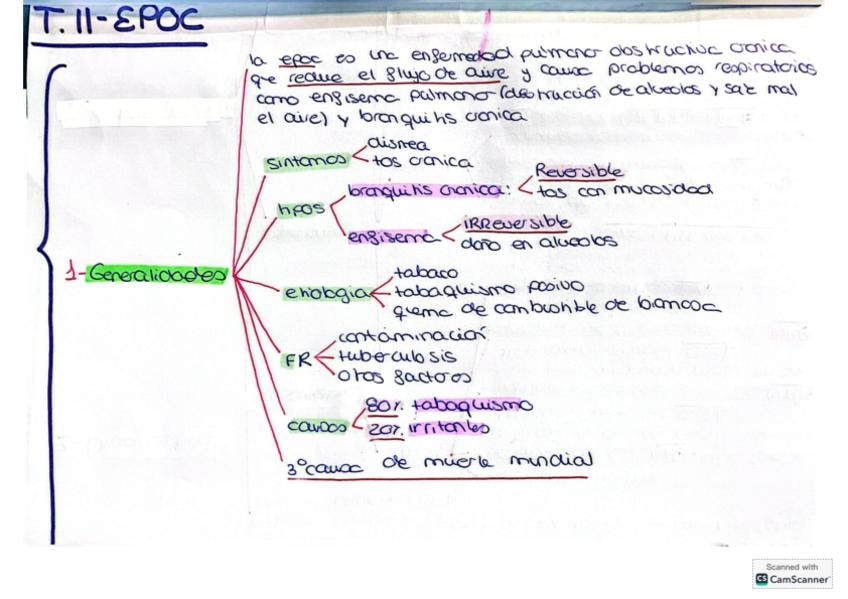 T.11-EPOC
la epoc es una enfermedad pulmonar obstructiva cronica
que reduce el flujo de aire y causa problemas respiratorios
como enfisema pulmonar (destrucción de alveolos y sale mal
el aire) y bronquitis cronica
sintomas
disnea
tos cronica
tipos
bronquitis cronica:
Reversible
tos con mucosidad
enfisema
IRReversible
daño en alveolos
1-Generalidades
etiologia
tabaco
tabaquismo pasivo
quema de combustible de biomasa
FR
contaminación
tuberculosis
otros factores
causas
80% tabaquismo
20% irritantes
3º causa de muerte mundial
Scanned with
CS CamScanner